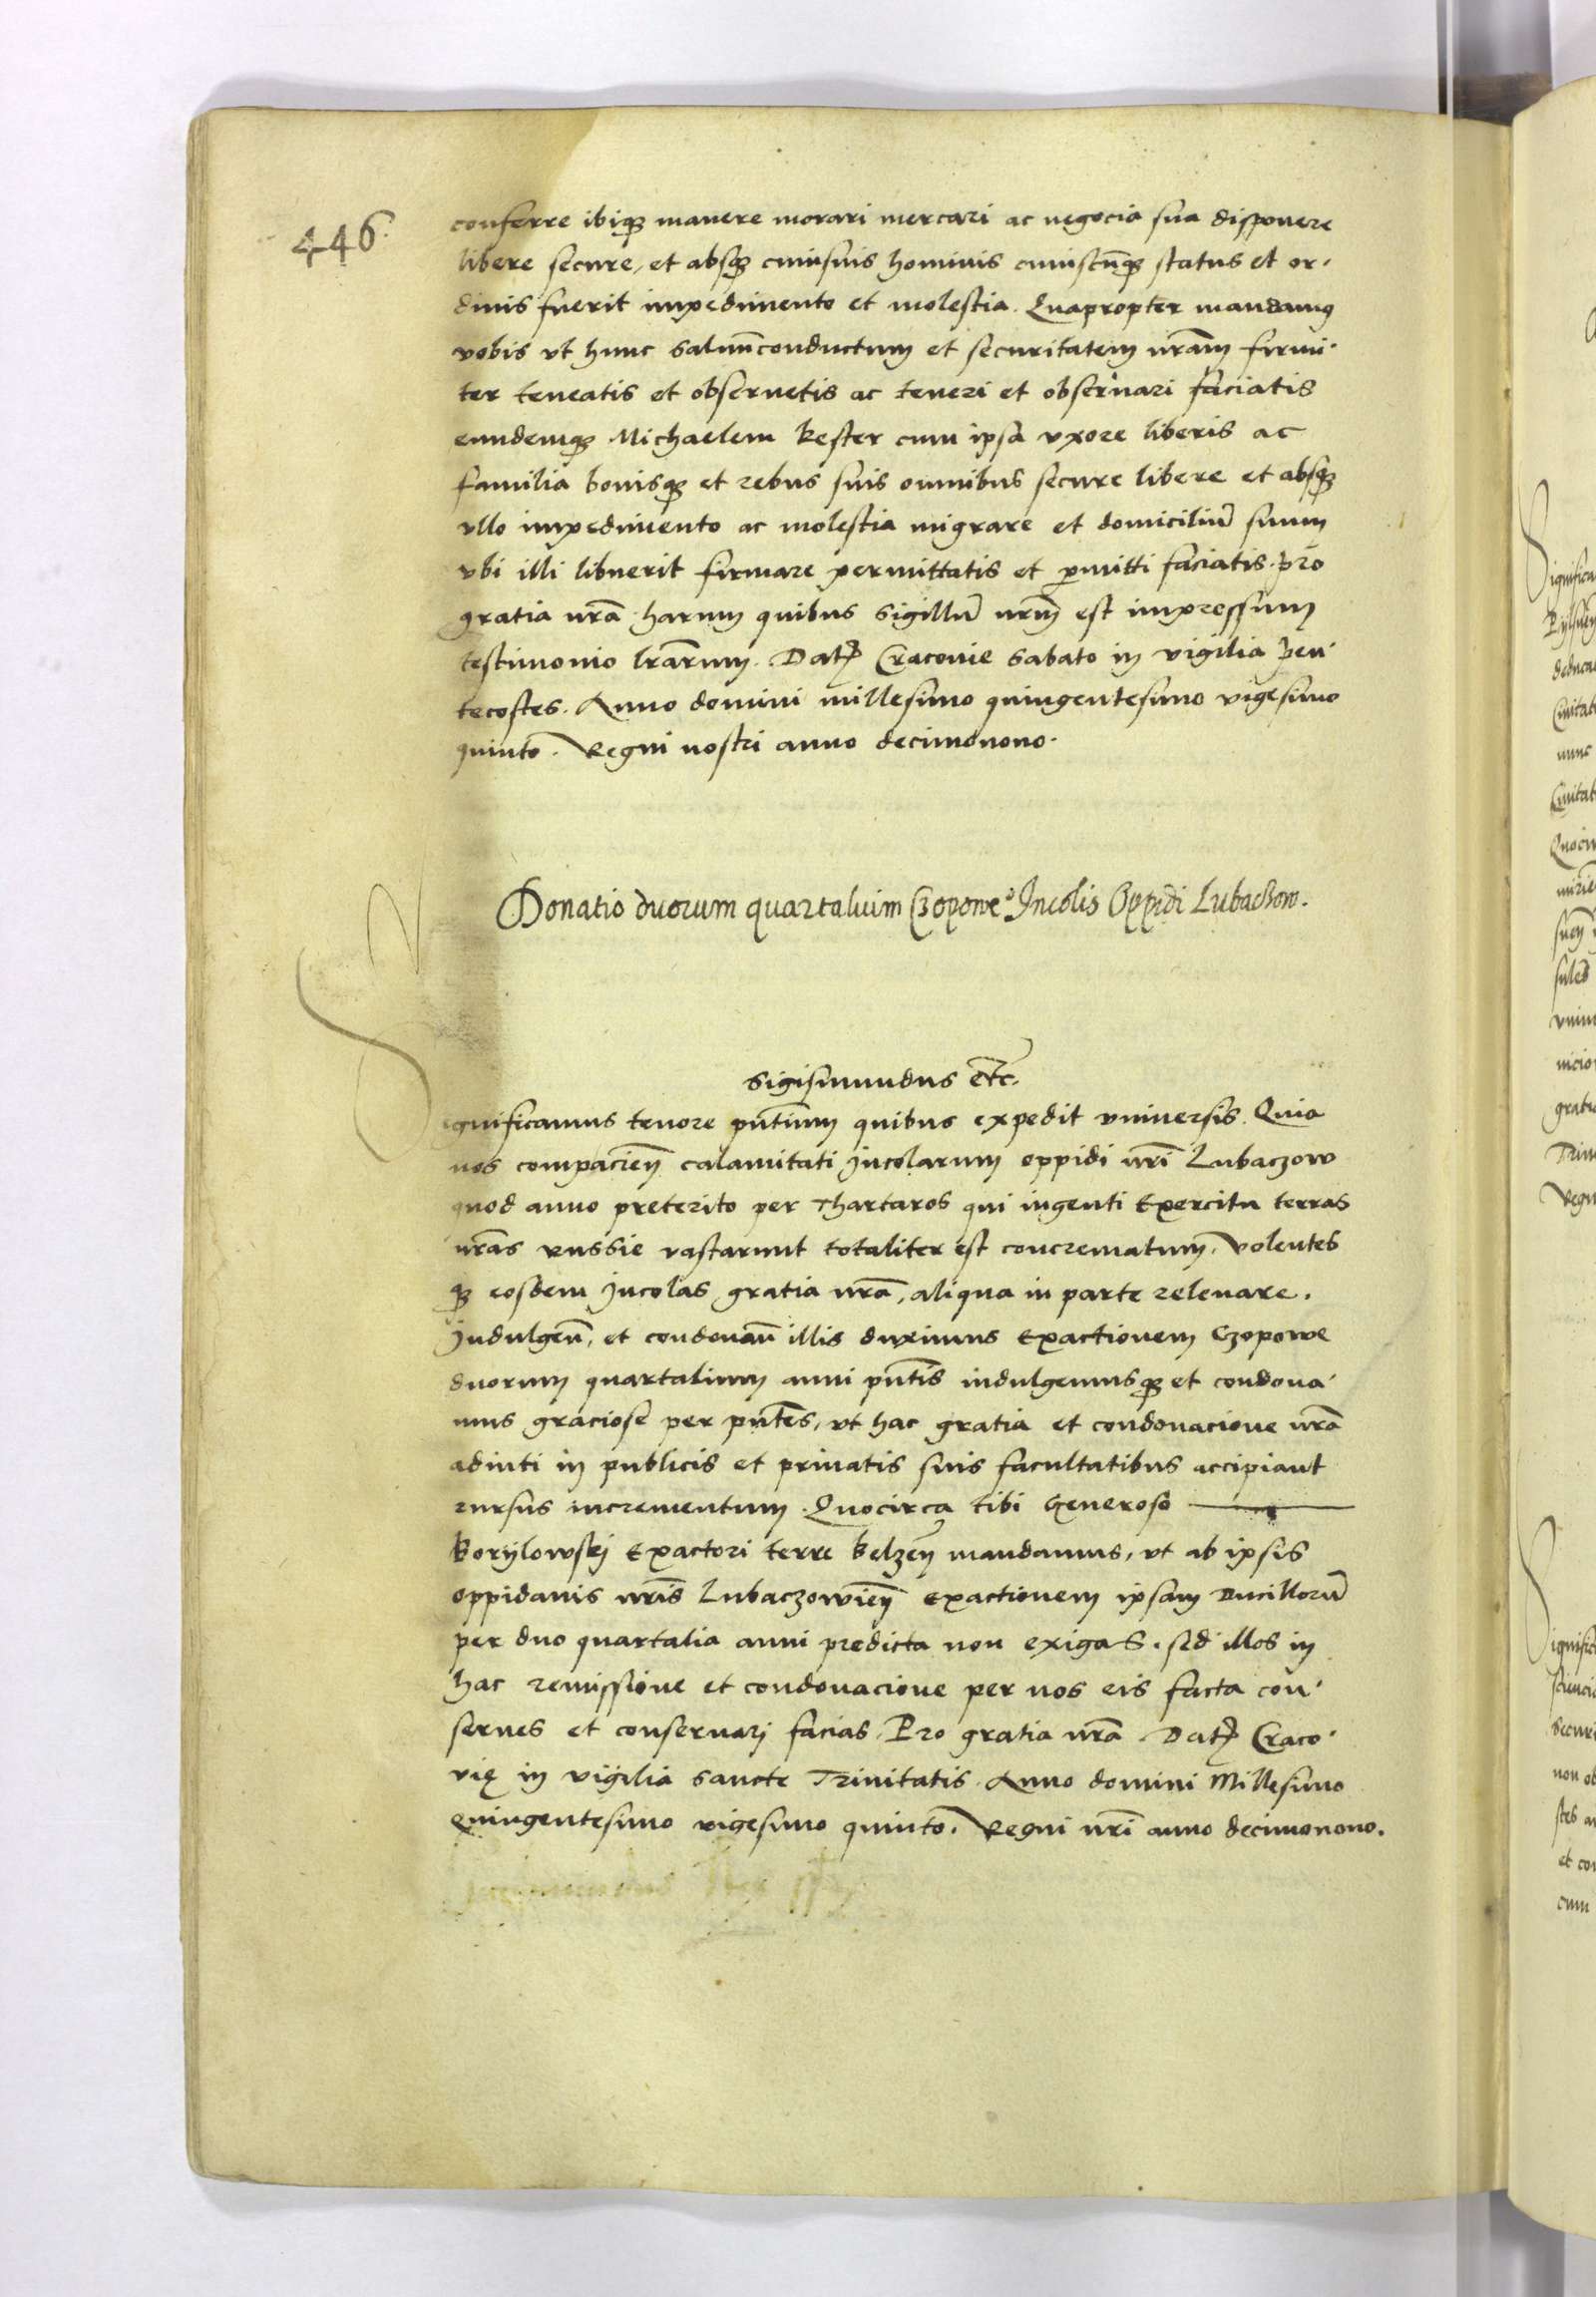 446.
conferre ibiq₃ manere morari mercari ac negocia sua disponere
libere secure, et absq₃ cuiusuis hominis cuiuscūq₃ status et or·
dinis fuerit impedimento et molestia. Quapropter mandamꝰ
vobis vt hunc saluūconductum et securitatem nr̄am firmi·
ter teneatis et obseruetis ac teneri et obseruari faciatis
eundemq₃ Michaelem Kester cum ipsa vxore liberis ac
familia bonisq₃ et rebus suis omnibus secure libere et absq₃
vllo impedimento ac molestia migrare et domiciliū suum
vbi illi libuerit firmare permittatis et ꝑmitti faciatis. pro
gratia nr̄a harum quibus sigillū nr̄m est impressum
testimonio lr̄arum. Datꝭ Cracouie sabato in vigilia pen·
tecostes. Anno domini millesimo quingentesimo vigesimo
quinto. Regni nostri anno decimonono.
Donatio duorum quartalium Czopowe. Incolis Oppidi Lubachow.
Sigismundus etc̄.
Significamus tenore pn̄tium quibus expedit vniuersis. Quia
nos compacieñ calamitati Incolarum oppidi nr̄i Lubaczow
quod anno preterito per Thartaros qui ingenti Exercitu terras
nr̄as Russie vastarunt totaliter est concrematum. Volentes
q₃ eosdem Incolas gratia nr̄a, aliqua in parte releuare.
Indulgeñ, et condonañ illis duximus Exactionem Czopowe
duorum quartalium anni pn̄tis indulgemusq₃ et condona·
mus graciose per pn̄tes, vt hac gratia et condonacione nr̄a
adiuti in publicis et priuatis suis facultatibus accipiant
rursus incrementum. Quocirca tibi Generoso
Korylowskj Exactori terre Belzeñ mandamus, vt ab ipsis
oppidanis nr̄is Lubaczowieñ Exactionem ipsam Ducillorū
per duo quartalia anni predicta non exigas. sed illos in
hac remissione et condonacione per nos eis facta con·
serues et conseruarj facias. Pro gratia nr̄a. Datꝭ Craco·
vię in vigilia sancte Trinitatis. Anno domini Millesimo
Quingentesimo vigesimo quinto. Regni nr̄i anno decimonono.